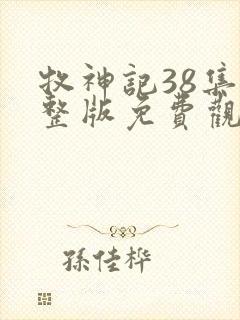 牧神記38集
整版免費觀
孫佳桦